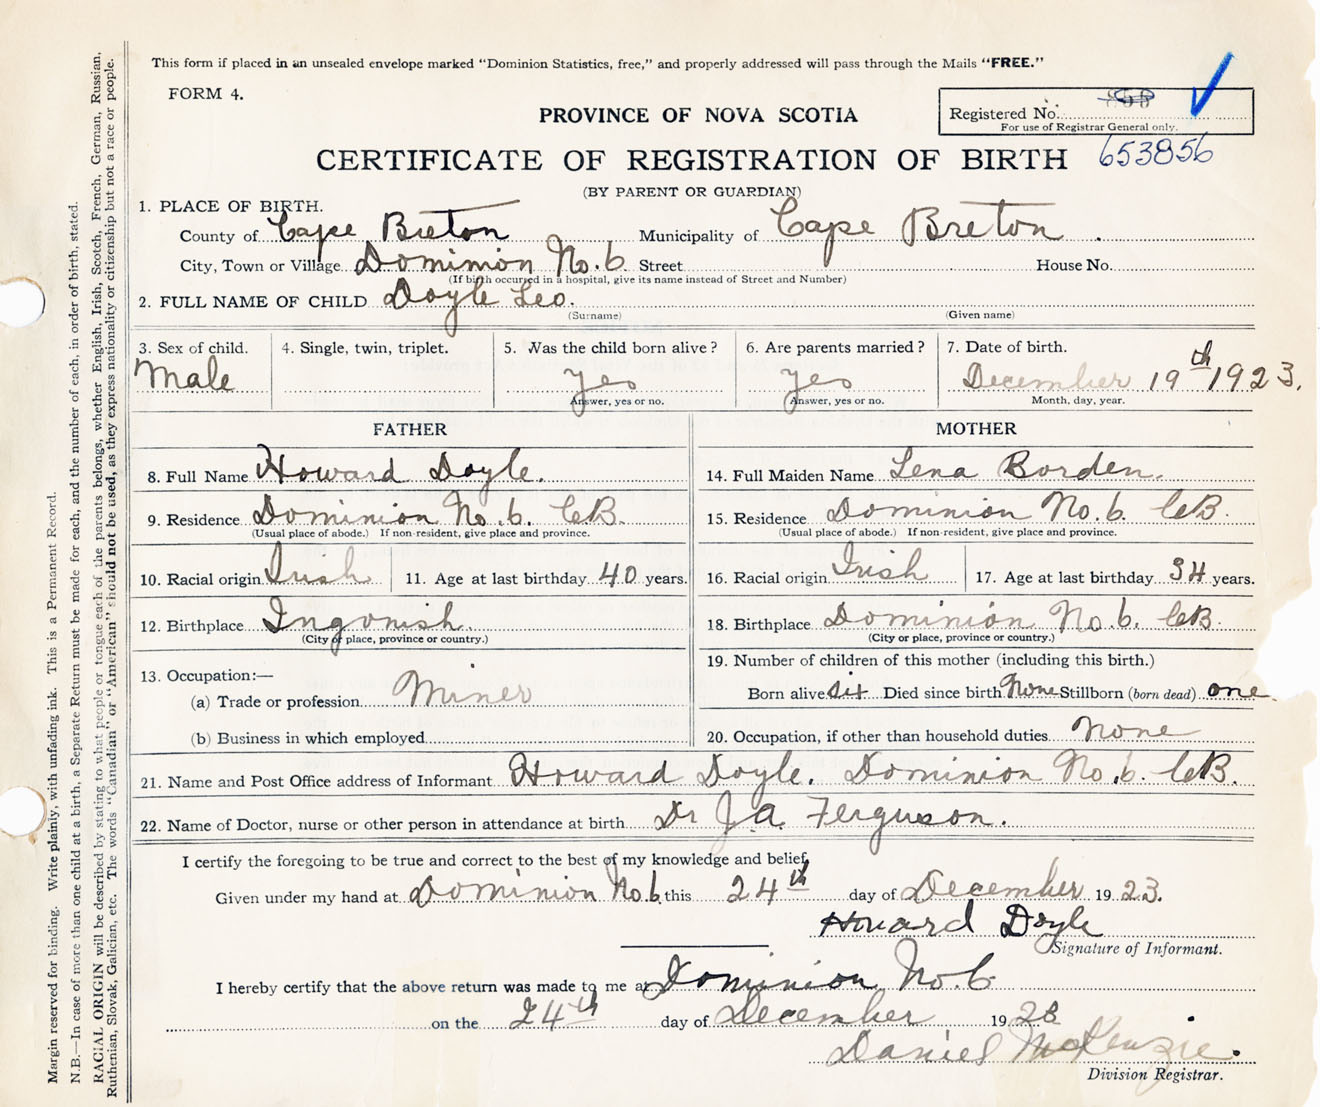 This form if placed in an unsealed envelope marked “Dominion Statistics, free,” and properly addressed will pass through the Mails “FREE.”
FORM 4.
PROVINCE OF NOVA SCOTIA
Registered No.
For use of Registrar General only.
653856
CERTIFICATE OF REGISTRATION OF BIRTH
(BY PARENT OR GUARDIAN)
1. PLACE OF BIRTH.
County of Cape Breton Municipality of Cape Breton.
City, Town or Village Dominion No. 6 Street House No.
(If birth occurred in a hospital, give its name instead of Street and Number)
2. FULL NAME OF CHILD Doyle Leo.
(Surname) (Given name)
3. Sex of child. 4. Single, twin, triplet. 5. Was the child born alive? 6. Are parents married? 7. Date of birth.
Male yes yes December 19th 1923.
Answer, yes or no. Answer, yes or no. Month, day, year.
FATHER MOTHER
8. Full Name Howard Doyle. 14. Full Maiden Name Lena Borden.
9. Residence Dominion No. 6. CB. 15. Residence Dominion No. 6. CB.
(Usual place of abode.) If non-resident, give place and province. (Usual place of abode.) If non-resident, give place and province.
10. Racial origin Irish 11. Age at last birthday 40 years. 16. Racial origin Irish 17. Age at last birthday 34 years.
12. Birthplace Ingonish. 18. Birthplace Dominion No. 6. CB.
(City or place, province or country.) (City or place, province or country.)
13. Occupation:— 19. Number of children of this mother (including this birth.)
(a) Trade or profession Miner Born alive six Died since birth None Stillborn (born dead) one
(b) Business in which employed 20. Occupation, if other than household duties none
21. Name and Post Office address of Informant Howard Doyle. Dominion No. 6. CB.
22. Name of Doctor, nurse or other person in attendance at birth Dr J. A. Ferguson.
I certify the foregoing to be true and correct to the best of my knowledge and belief,
Given under my hand at Dominion No. 6 this 24th day of December 1923.
Howard Doyle
Signature of Informant.
I hereby certify that the above return was made to me at Dominion No. 6
on the 24th day of December 1923
Daniel McKenzie.
Division Registrar.
Margin reserved for binding. Write plainly, with unfading ink. This is a Permanent Record.
N.B.—In case of more than one child at a birth, a Separate Return must be made for each, and the number of each, in order of birth, stated.
RACIAL ORIGIN will be described by stating to what people or tongue each of the parents belongs, whether English, Irish, Scotch, French, German, Russian,
Ruthenian, Slovak, Galician, etc. The words “Canadian” or “American” should not be used, as they express nationality or citizenship but not a race or people.